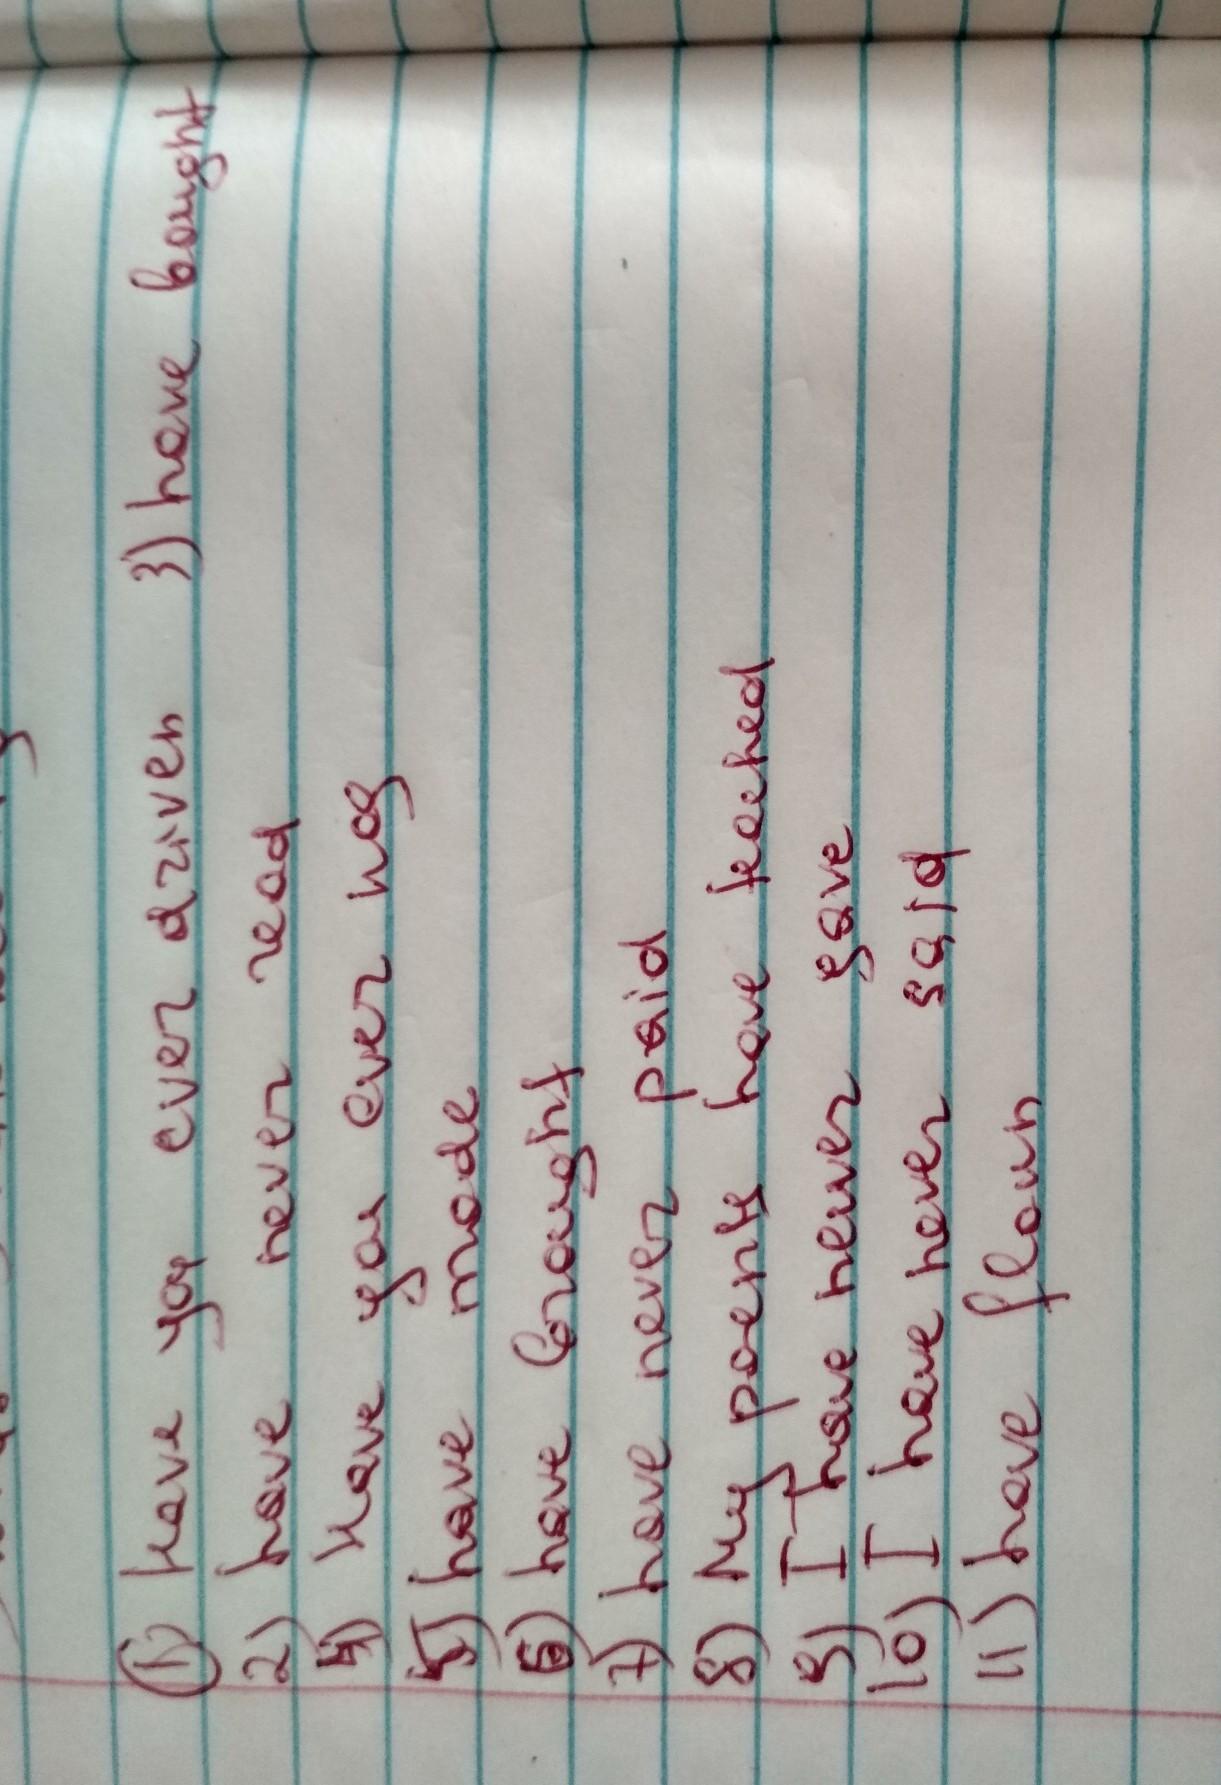 1) have you ever driven 3) have bought
2) have never read
4) Have you ever hag
5) have made
6) have brought
7) have never paid
8) My poents have teached
9) I have never gave
10) I have never said
11) have flown